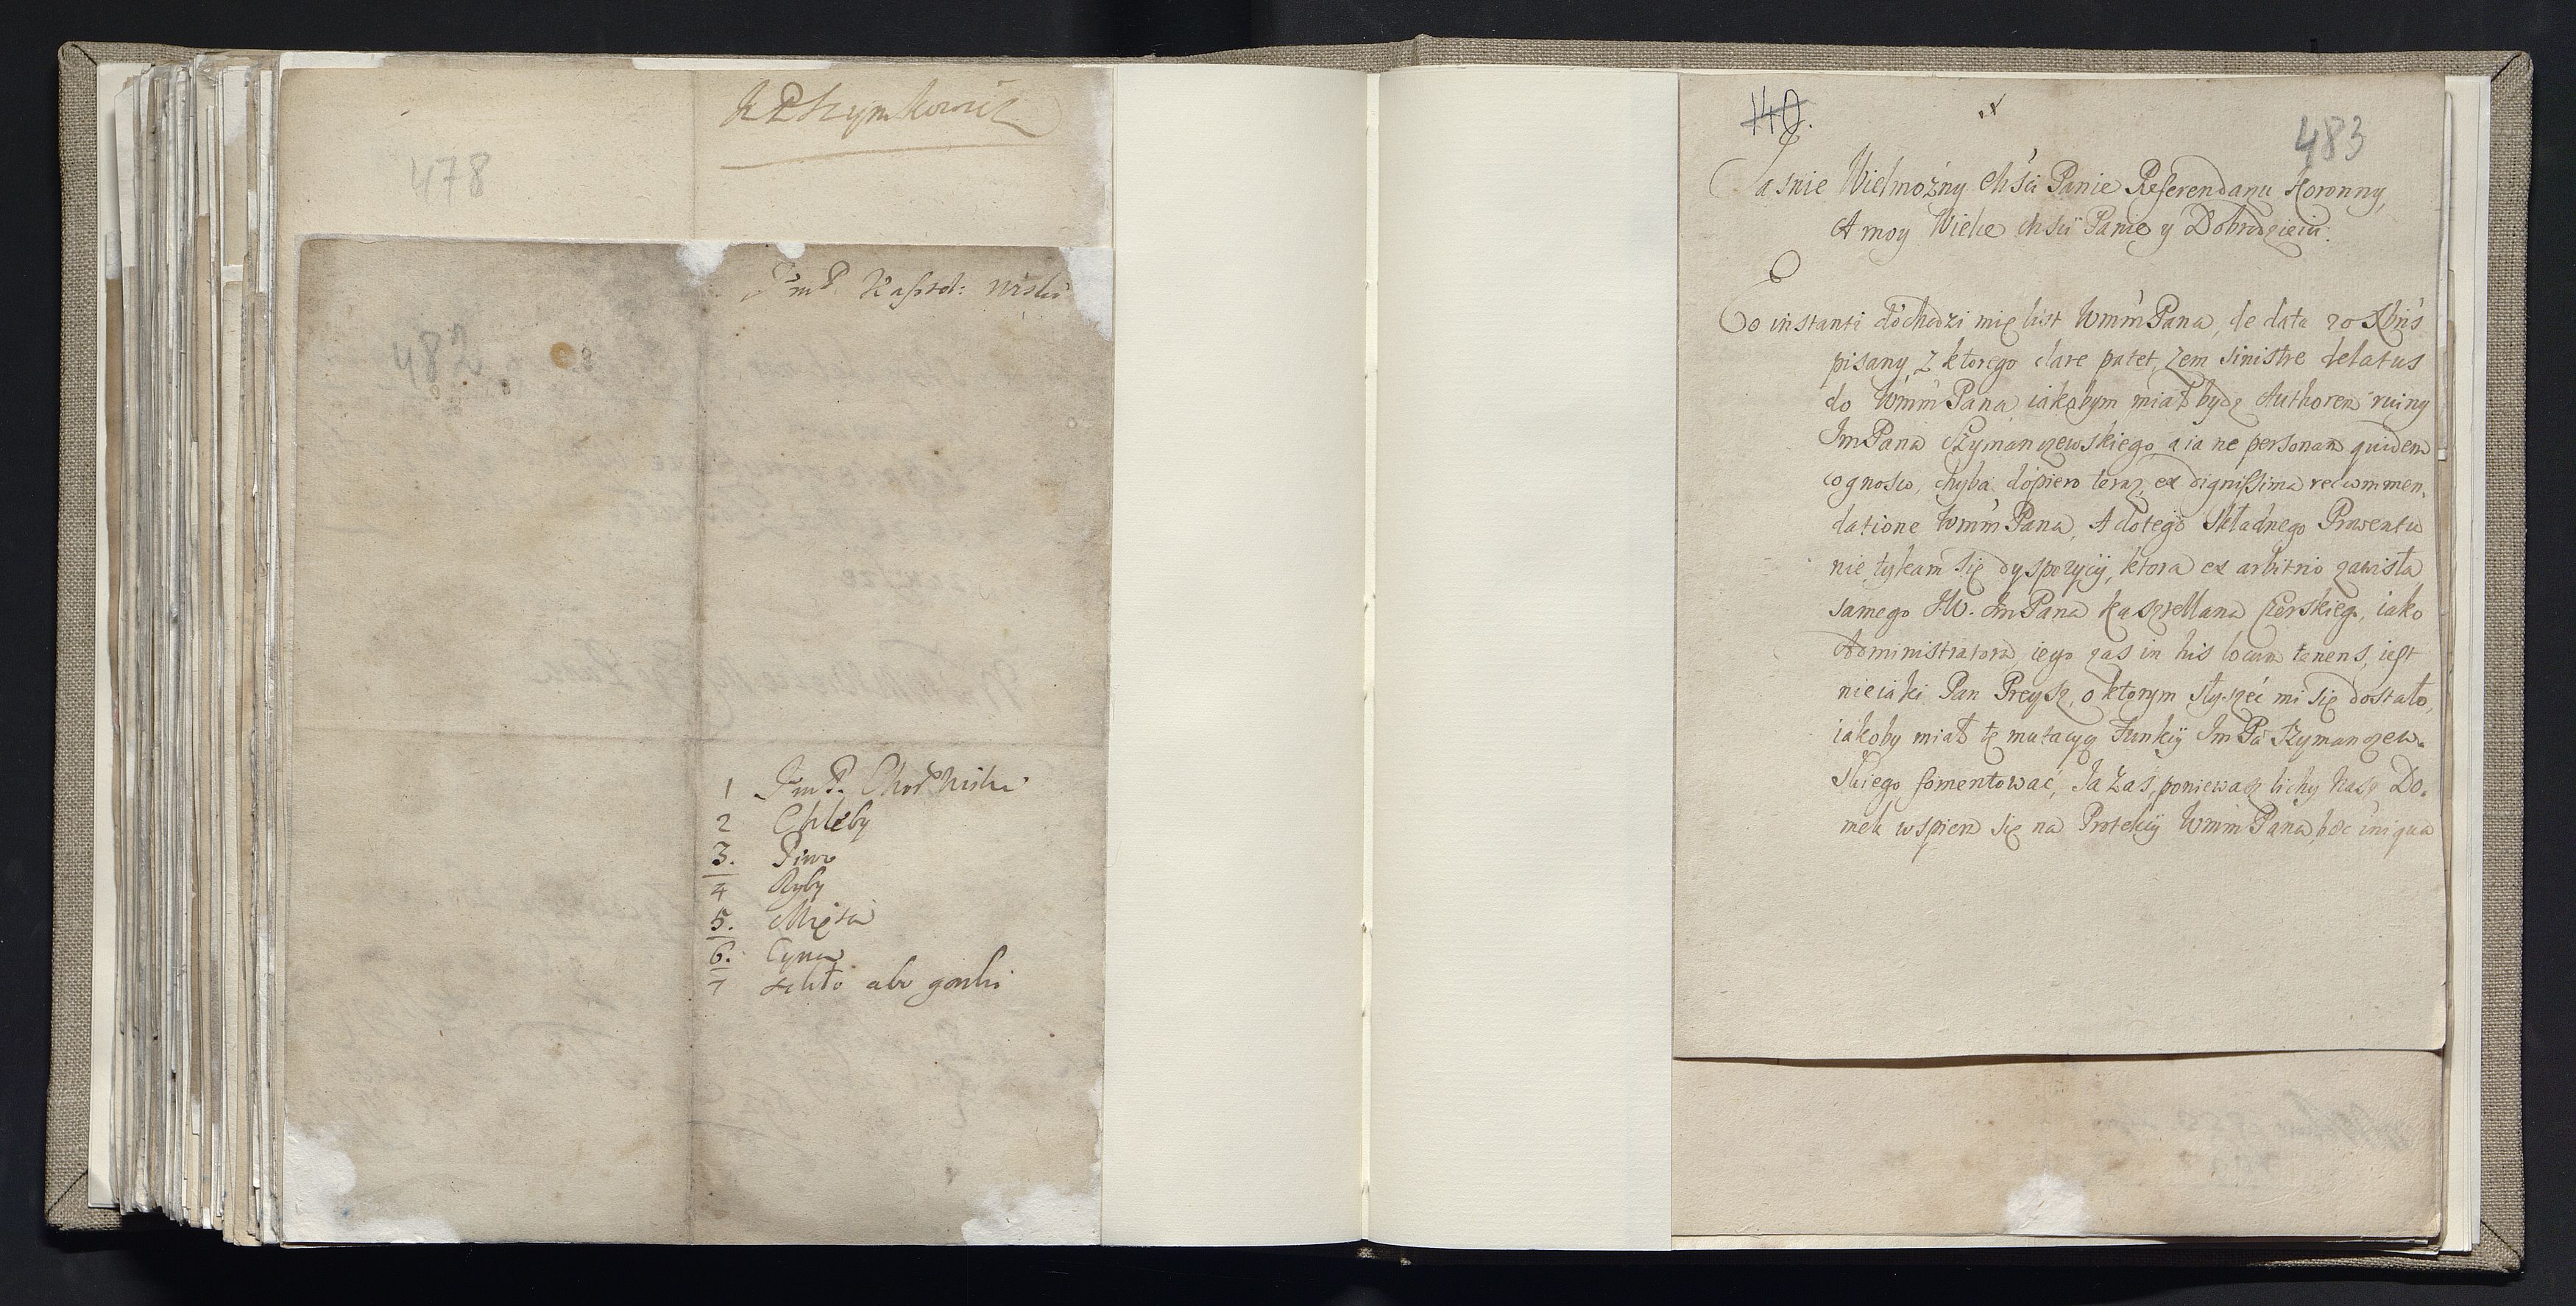 478
482
Jm P. Kaszt: Wiski
1 Jm P. Chor Wiski
2 Chleby
3. Piwo
4 Ryby
5. Mięsa
6. Cyna
7 abo gonti
140.
483
Jasnie Wielmożny Mści Panie Referendarzu Koronny,
A moy Wielce Mści Panie y Dobrodzieiu.
Eo instanti dochodzi mię list WmmPana, de data 20 Xbris
pisany, z ktorego clare patet, żem sinistre delatus
do WmmPana, iakobym miał bydz Authorem ruiny
ImPana Szymanczewskiego, a ia ne personam quidem
cognosco, chyba dopiero teraz, ex dignissima recommen,
datione WmmPana, A do tego Składnego Prowentu
nie tykam się dyspozycij, ktora ex arbitrio zawisła
samego JW. ImPana Kasztellana Czerskieg, iako
Administratora, iego zas in his locum tenens, iest
nieiaki Pan Preysz, o ktorym słyszeć mi się dostało,
iakoby miał tę mutacyą Funkij Im Pa Szymanczew-
skiego fomentować, Ja zaś, poniewasz lichy Nasz Do-
mek wspiera się na Protekcij WmmPana, hoc iniqua